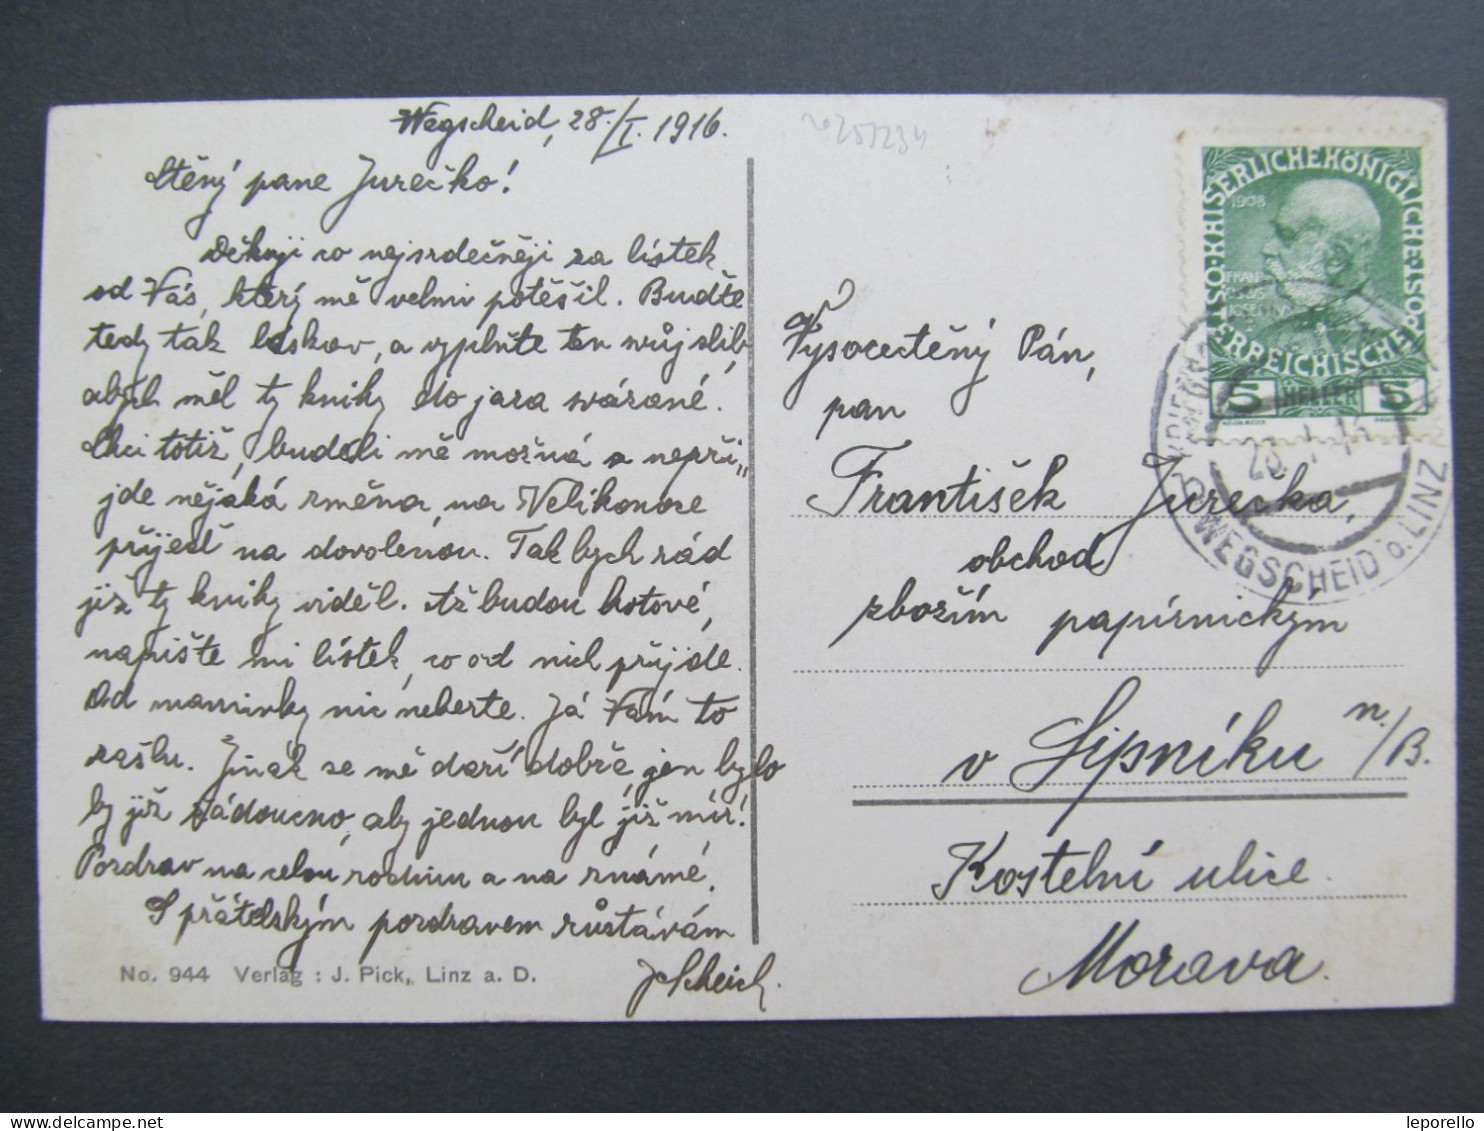 Wegscheid, 28./I. 1916.
Ctěný pane Jurečko!
Děkuji co nejsrdečněji za lístek
od Vás, který mě velmi potěšil. Buďte
tedy tak láskav, a vyplňte ten svůj slib
abych měl ty knihy do jara svázané.
Chci totiž, budeli mě možná a nepři„
jde nějaká změna, na Velikonoce
přijeď na dovolenou. Tak bych rád
již ty knihy viděl. Až budou hotové,
napište mi lístek, co od nich přijde.
Od maminky nic neberte. Já Vám to
zašlu. Jinak se mě daří dobře, jen bylo
by již žádoucno, aby jednou byl již mír!
Pozdrav na celou rodinu a na známé.
S přátelským pozdravem zůstávám
JScheich.
No. 944 Verlag : J. Pick, Linz a. D.
257234
KAISERLICHE KÖNIGLICHE
ÖSTERREICHISCHE POST
1908
FRANZ
JOSEF I
5 HELLER 5
WEGSCHEID b. LINZ
28
Vysocectěný Pán,
pan
František Jurečka,
obchod
zbožím papírnickým
v Lipníku n/B.
Kostelní ulice.
Morava.
leporello